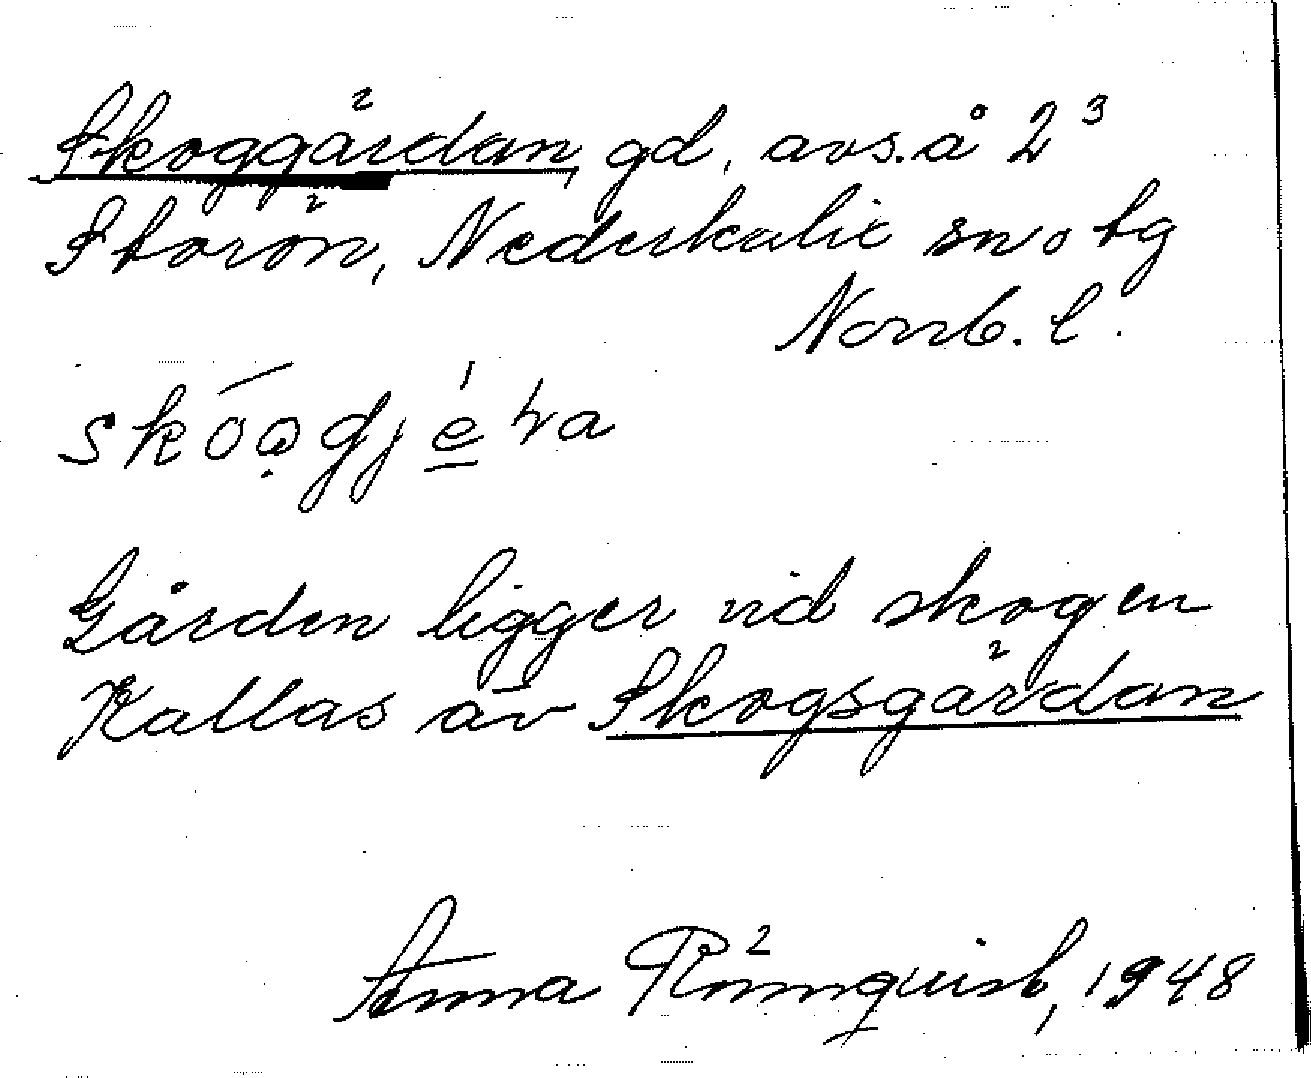 Skoggårdan, gd, avs. å 2³
Storön, Nederkalix sn o tg
Norrb. l.
skóo̩gjé̱ra
Gården ligger vid skogen
Kallas äv Skogsgårdan
Anna Rönnquist, 1948